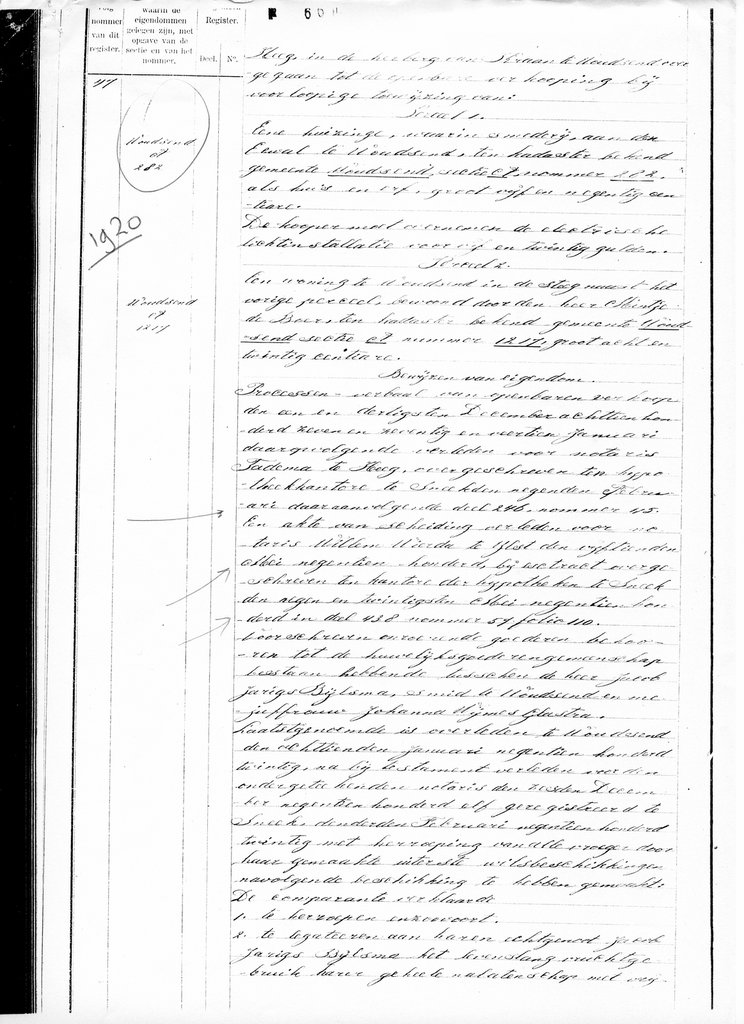 nommer
van dit
register.
waarin de
eigendommen
gelegen zijn, met
opgave van de
sectie en van het
nommer.
Register.
Deel.
No.
60
47
Woudsend
A
282
1920
Woudsend
A
1217
Heeg, in de herberg van Straan te Woudsend over
ge gaan tot de openbare verkooping bij
voorloopige toewijzing van:
Perceel 1.
Eene huizinge, waarin smederij, aan den
Eewal te Woudsend, ten kadaster bekend
gemeente Woudsend, sectie A, nommer 282,
als huis en erf, groot vijf en negentig cen
-tiare.
De kooper moet overnemen de electrische
lichtinstallatie voor vijf en twintig gulden.
Perceel 2.
Een woning te Woudsend in de steeg naast het
vorige perceel, bewoond door den heer
de Boer, ten kadaster bekend gemeente Woud-
-send sectie A nummer 1217, groot acht en
twintig centiare.
Bewijzen van eigendom.
Processen-verbaal van openbaren verkoop
den een en dertigsten December achttienhon
-derd zeven en zeventig en veertien Januari
daaropvolgende verleden voor notaris
Tadema te Heeg, overgeschreven ten hypo
-theekkantore te Sneek den negenden Febru-
-ari daaraanvolgende deel 246, nommer 45.
En akte van scheiding verleden voor no
-taris Willem Wierda te IJlst den vijftienden
Mei negentien-honderd, bij extract overge-
-schreven ten kantore der hypotheken te Sneek
den negen en twintigsten Mei negentien hon
-derd in deel 438 nommer 57 folio 110.
Voorschreven onroerende goederen behoo-
-ren tot de huwelijksgoederengemeenschap
bestaan hebbende tusschen de heer Jacob
Jarigs Bijlsma, smid te Woudsend en me
-juffrouw Johanna Wijmes
Laatstgenoemde is overleden te Woudsend
den achttienden Januari negentien honderd
twintig, na bij testament verleden voor den
ondergeteekenden notaris den zesden Decem-
-ber negentienhonderd elf geregistreerd te
Sneek, den derden Februari negentienhonderd
twintig met herroeping van alle vroeger door
haar gemaakte uiterste wilsbeschikkingen
navolgende beschikking te hebben gemaakt:
De comparante verklaarde
1. te herroepen enzoovoort.
2. te legateeren aan haren echtgenoot Jacob
Jarigs Bijlsma het levenslang vruchtge-
-bruik harer geheele nalatenschap met vrij-